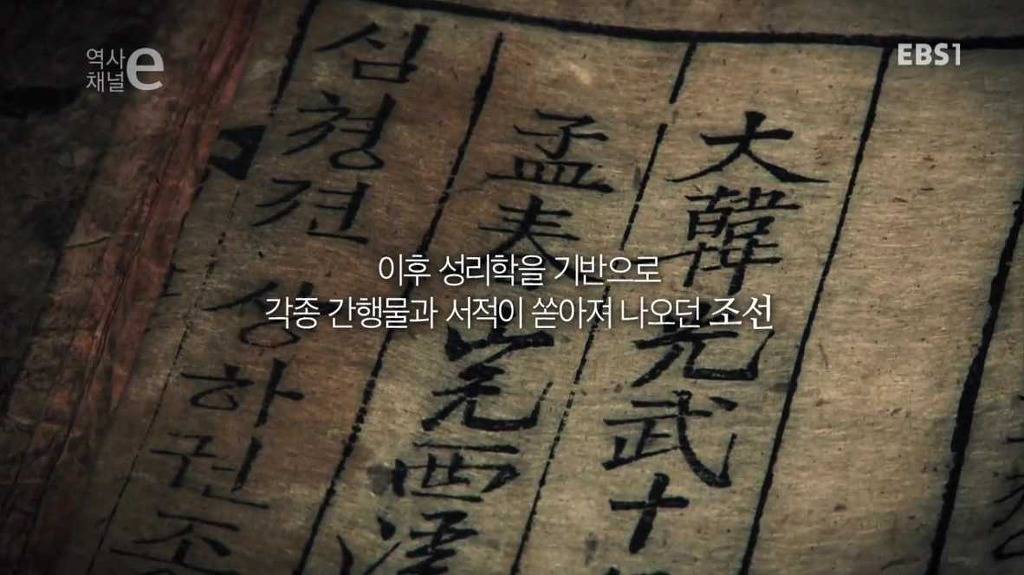 역사
채널e
EBS1
이후 성리학을 기반으로
각종 간행물과 서적이 쏟아져 나오던 조선
大韓光武十
孟夫
심청젼 상하권